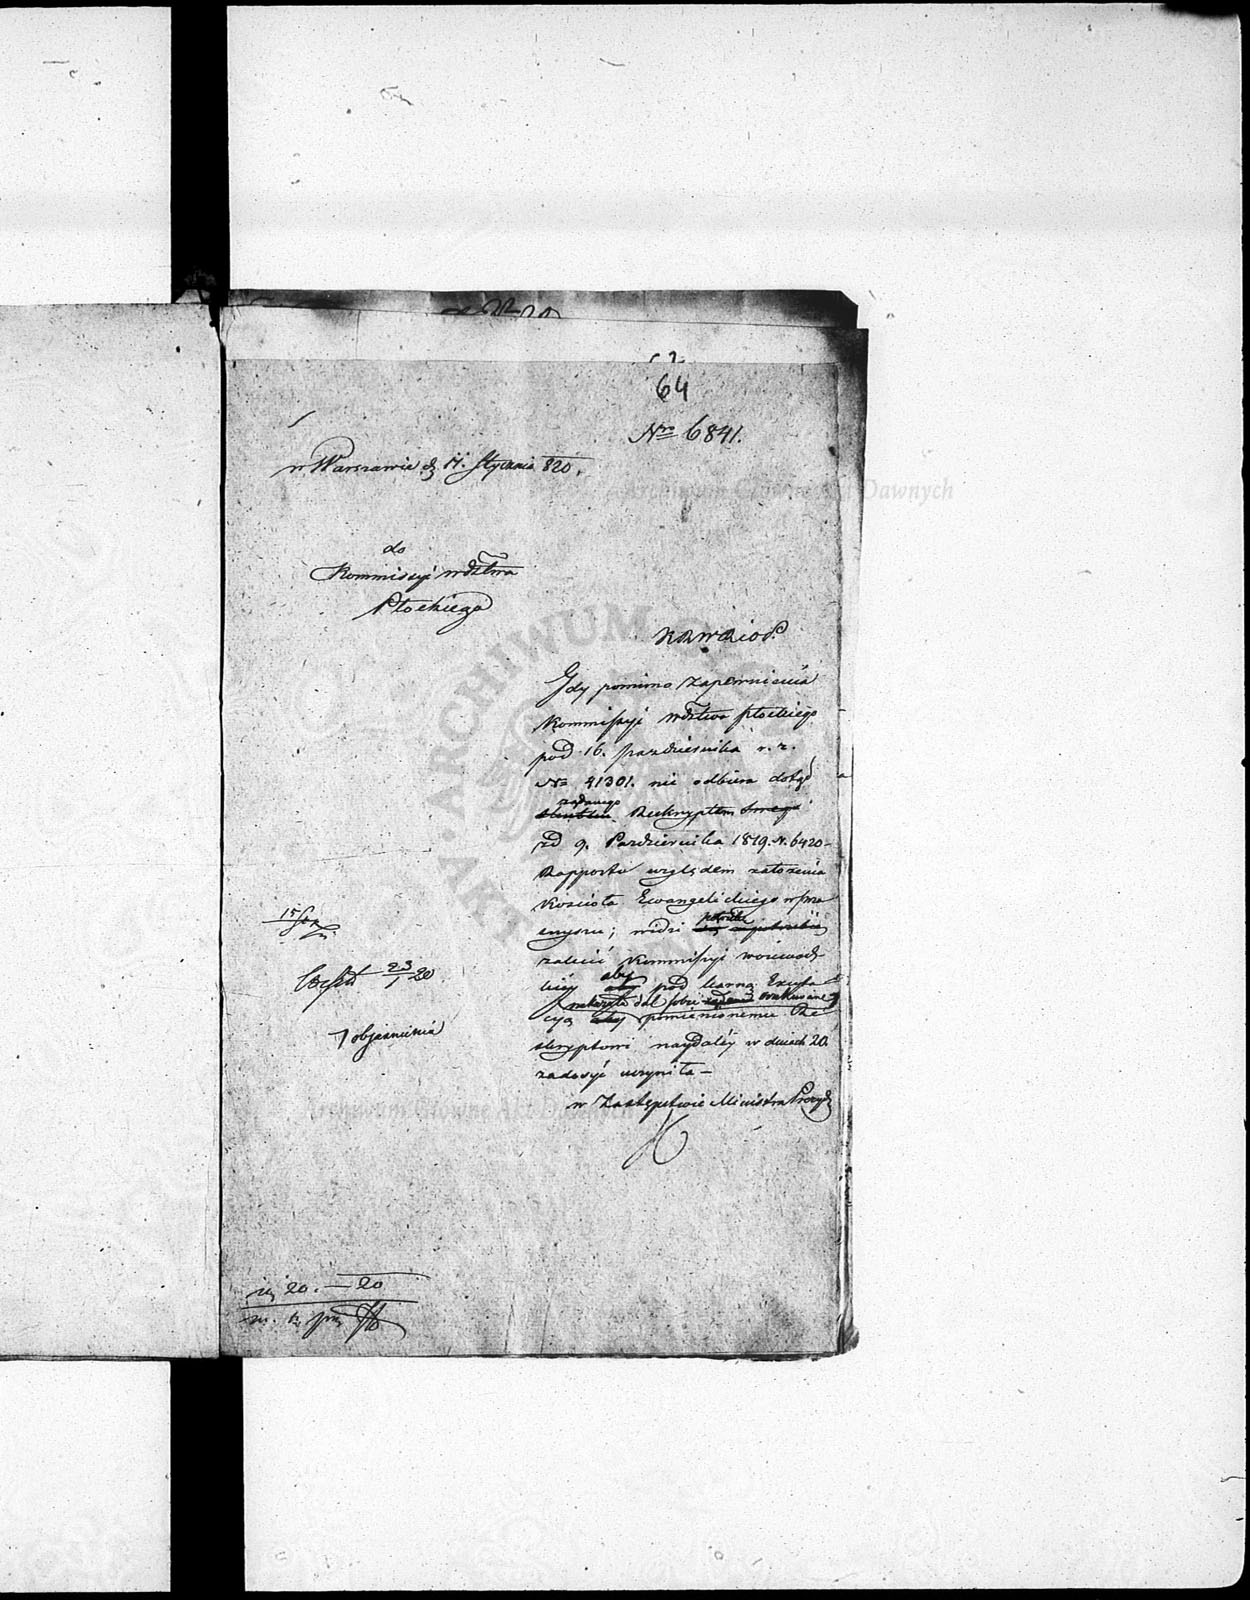 64
Nro 6841.
w Warszawie d. 14. Stycznia 820.
do
Kommissyi wdztwa
Płockiego
KRWRiOP.
Gdy pomimo zapewnienia
Kommissyi wdztwa Płockiego
pod 16. Pazdziernika r. z.
No 41301. nie odbiera dotąd
żądanego
Reskryptem swego
pd 9. Pazdziernika 1819. N. 6420
Rapportu względem założenia
Kościoła Ewangelickiego w Prza
snyszu; widzi potrzebę
zalecić Kommissyi woiewodz
kiey aby pod karną Exeku
cyą aby pomienionemu Re
skryptowi naydaléy w dniach 20.
zadosyć uczyniła —
w Zastępstwie Ministra Prezyd
23/1 20
objaśnienia
20. — 20
Archiwum Główne Akt Dawnych
ARCHIWUM GŁÓWNE AKT DAWNYCH
Archiwum Główne Akt Dawnych